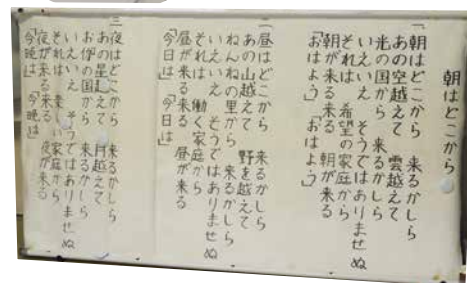 朝はどこから
一、朝はどこから 来るかしら
あの空越えて 雲越えて
光の国から 来るかしら
いえいえ そうではありませぬ
それは 希望の家庭から
朝が来る来る 朝が来る
「おはよう」「おはよう」
二、昼はどこから 来るかしら
あの山越えて 野を越えて
ねんねの里から 来るかしら
いえいえ そうではありませぬ
それは 働く家庭から
昼が来る来る 昼が来る
「今日は」「今日は」
三、夜はどこから 来るかしら
あの星越えて 月越えて
お伽の国から 来るかしら
いえいえ そうではありませぬ
それは 楽しい家庭から
夜が来る来る 夜が来る
「今晩は」「今晩は」